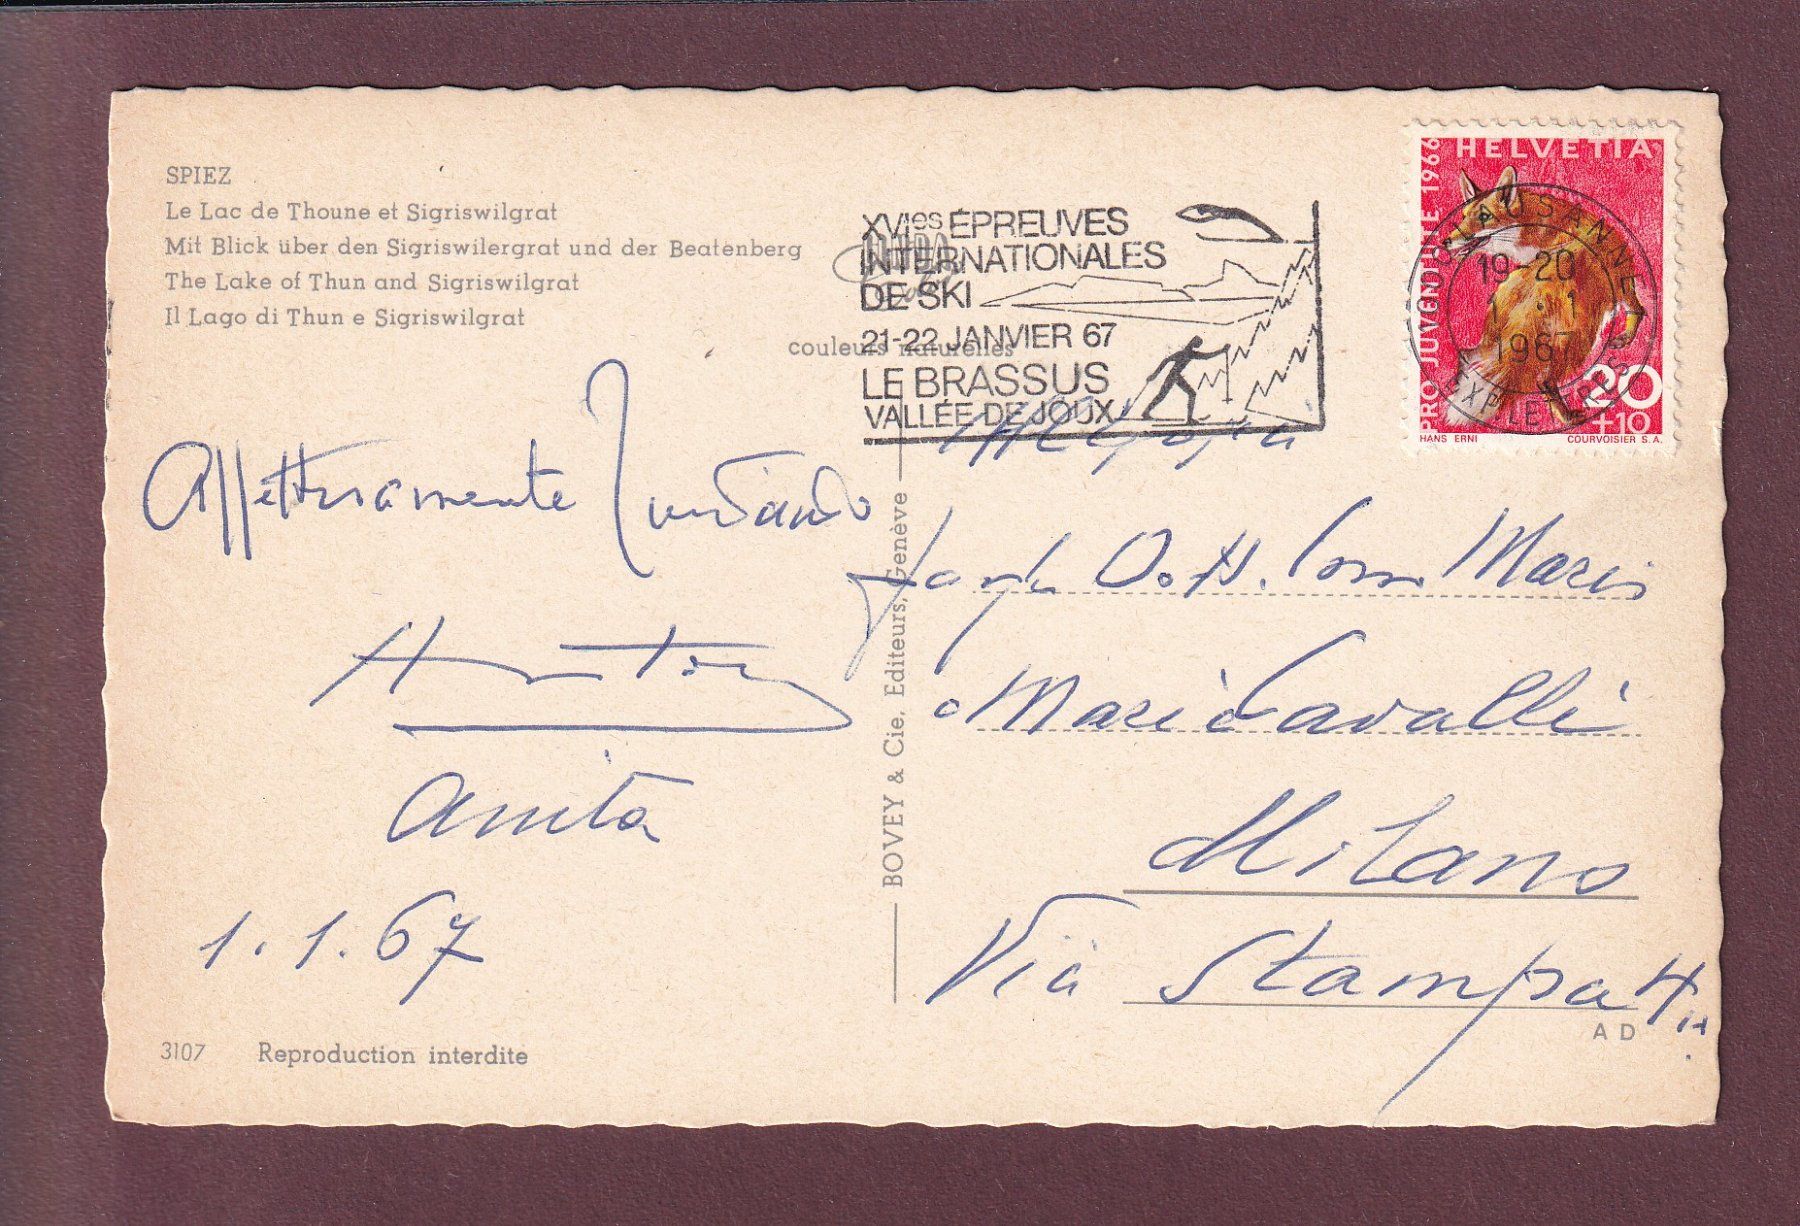 SPIEZ
Le Lac de Thoune et Sigriswilgrat
Mit Blick über den Sigriswilergrat und der Beatenberg
The Lake of Thun and Sigriswilgrat
Il Lago di Thun e Sigriswilgrat
couleurs naturelles
XVIes ÉPREUVES
INTERNATIONALES
DE SKI
21-22 JANVIER 67
LE BRASSUS
VALLÉE DE JOUX
HELVETIA
PRO JUVENTUTE 1966
20
+10
HANS ERNI COURVOISIER S.A.
LAUSANNE 1
19-20
1.-1
1967
EXP LET
Affettuosamente
Anita
1.1.67
BOVEY & Cie, Editeurs, Genève
Dott. Comm Mario
Maria Cavalli
Milano
Via Stampa 4
3107 Reproduction interdite
AD